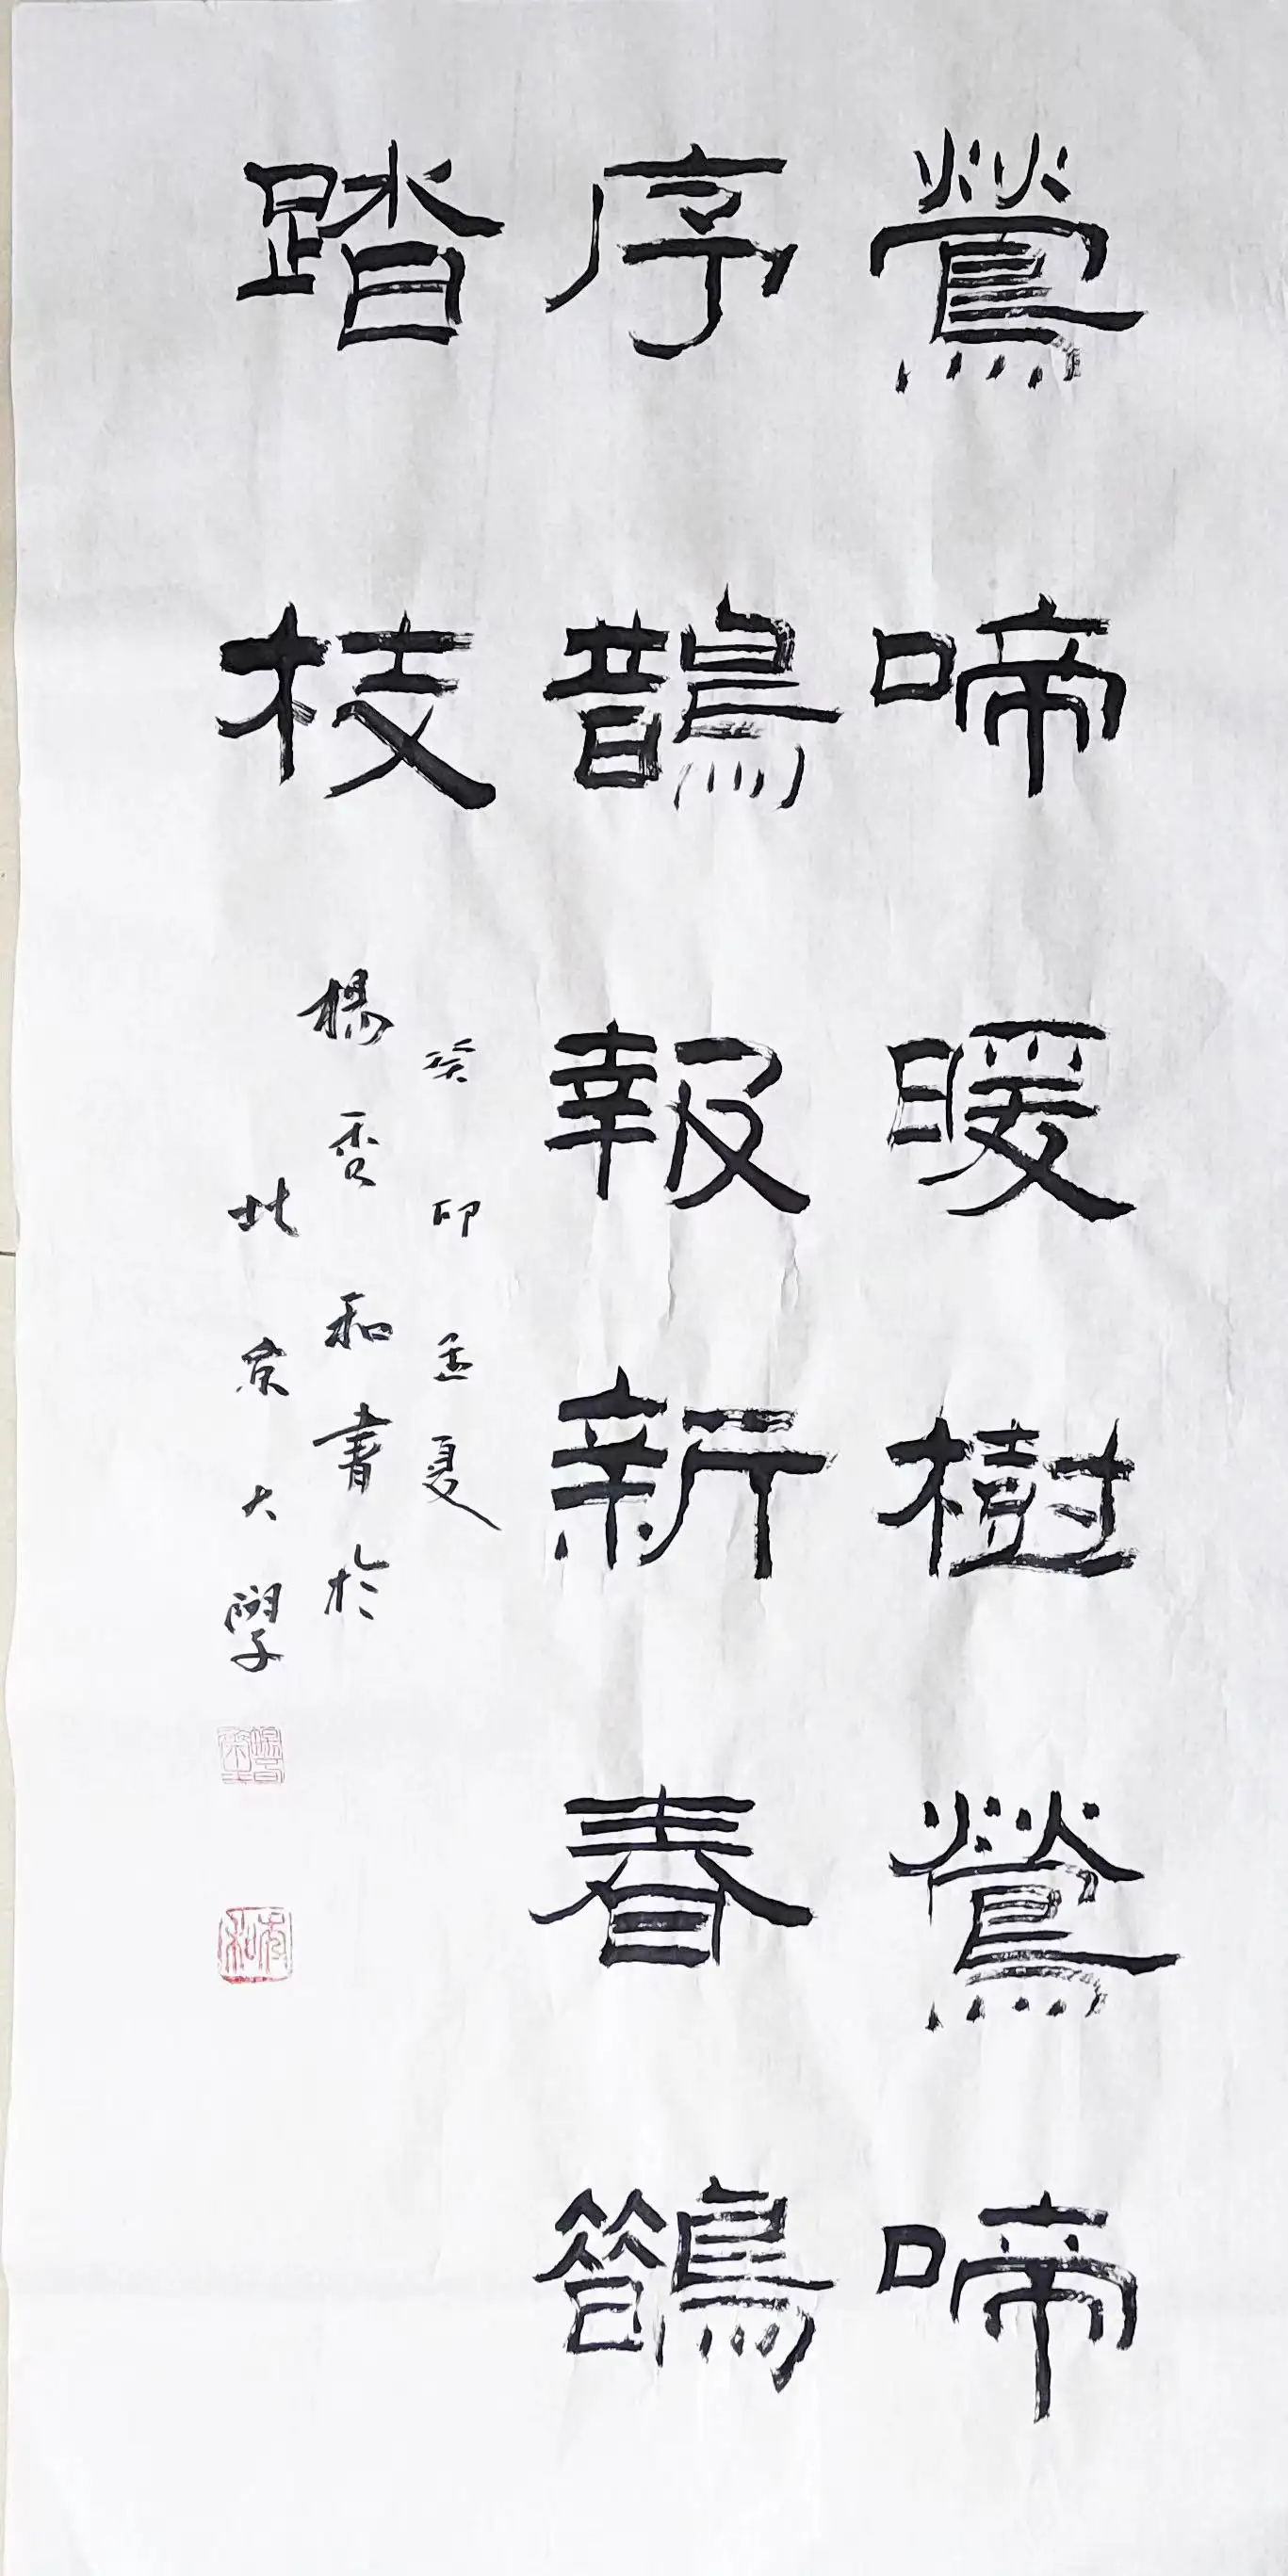 鶯啼暖樹鶯啼
序鵲報新春鵲
踏枝
癸卯孟夏
楊秀和書於
北京大學